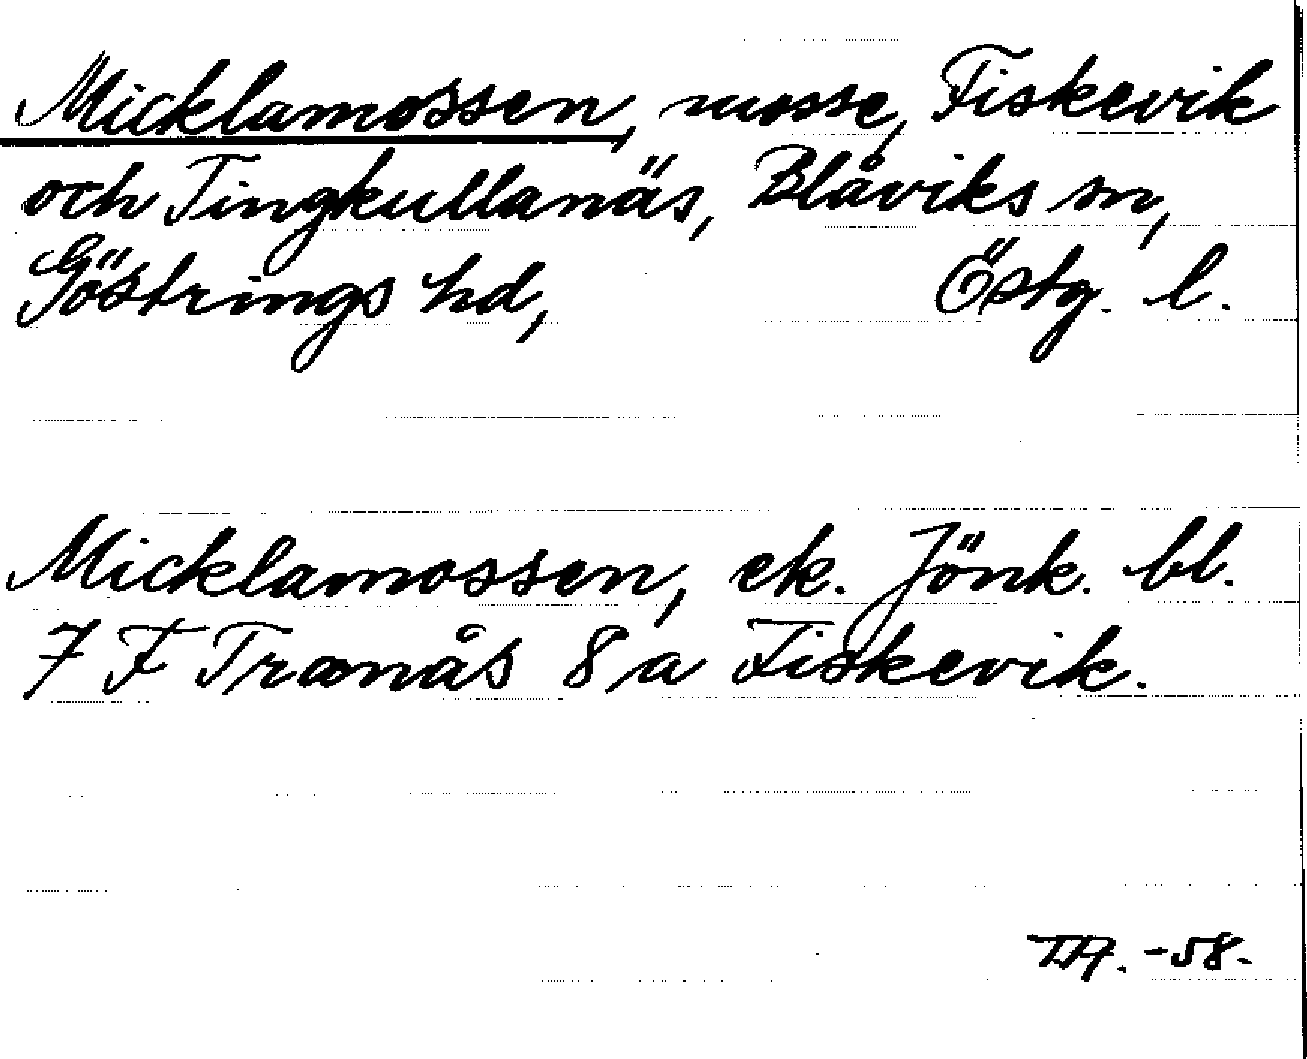 Micklamossen, mosse, Fiskevik
och Tingkullanäs, Blåviks sn,
Göstrings hd, Östg. l.
Micklamossen, ek. Jönk. bl.
7 F Tranås 8 a Fiskevik.
TA. -58-